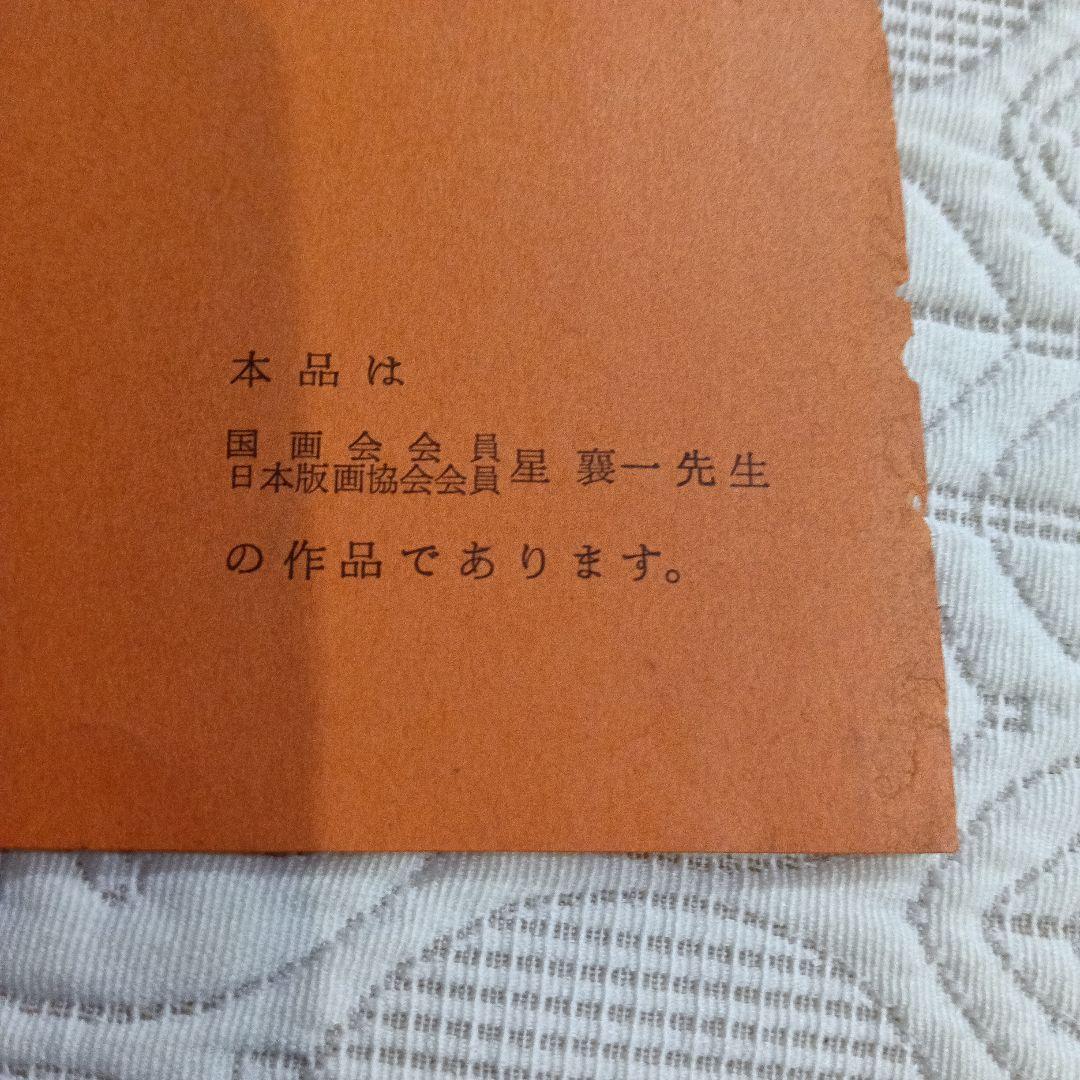 本品は
国画会会員
日本版画協会会員 星襄一先生
の作品であります。